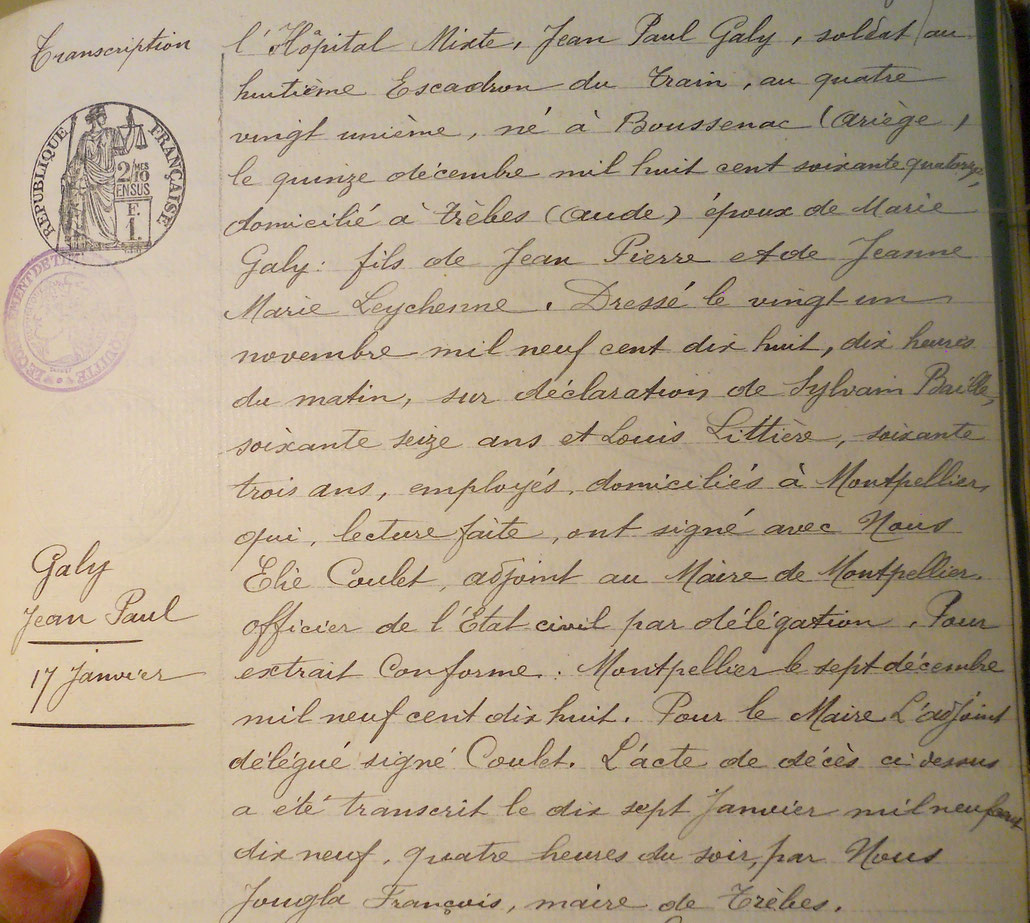 Transcription
REPUBLIQUE FRANÇAISE
2/10 MES
EN SUS
F.
1.
Galy
Jean Paul
17 Janvier
l'Hôpital Mixte, Jean Paul Galy, soldat au
huitième Escadron du train, au quatre
vingt unième, né à Boussenac (Ariège)
le quinze décembre mil huit cent soixante quatorze,
domicilié à Trèbes (Aude) époux de Marie
Galy: fils de Jean Pierre et de Jeanne
Marie Leychenne. Dressé le vingt un
novembre mil neuf cent dix huit, dix heures
du matin, sur déclaration de Sylvain Baille,
soixante seize ans et Louis Littière, soixante
trois ans, employés, domiciliés à Montpellier,
qui, lecture faite, ont signé avec Nous
Elie Coulet, adjoint au Maire de Montpellier,
officier de l'Etat civil par délégation. Pour
extrait conforme: Montpellier le sept décembre
mil neuf cent dix huit. Pour le Maire L'adjoint
délégué signé Coulet. L'acte de décès ci dessus
a été transcrit le dix sept Janvier mil neuf cent
dix neuf, quatre heures du soir, par Nous
Jougla François, maire de Trèbes.